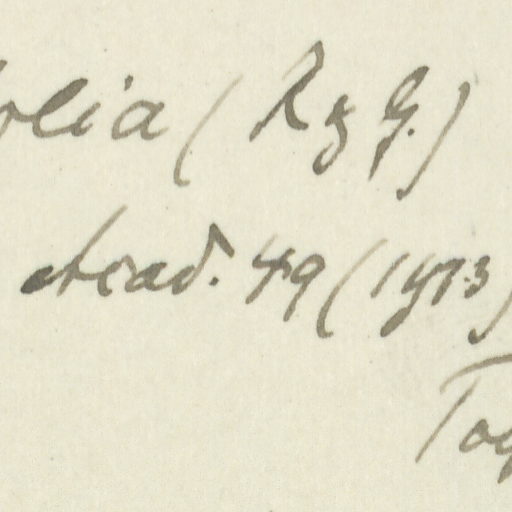 olia (R & G.)
Acad. 49 (1913)